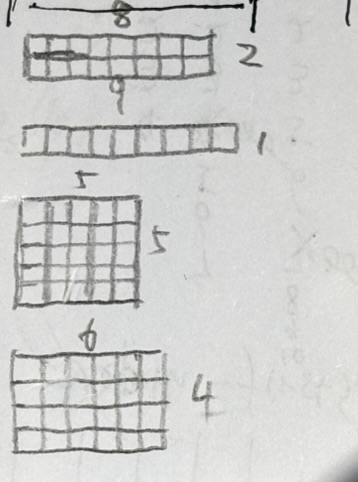 8
2
9
1
5
5
6
4